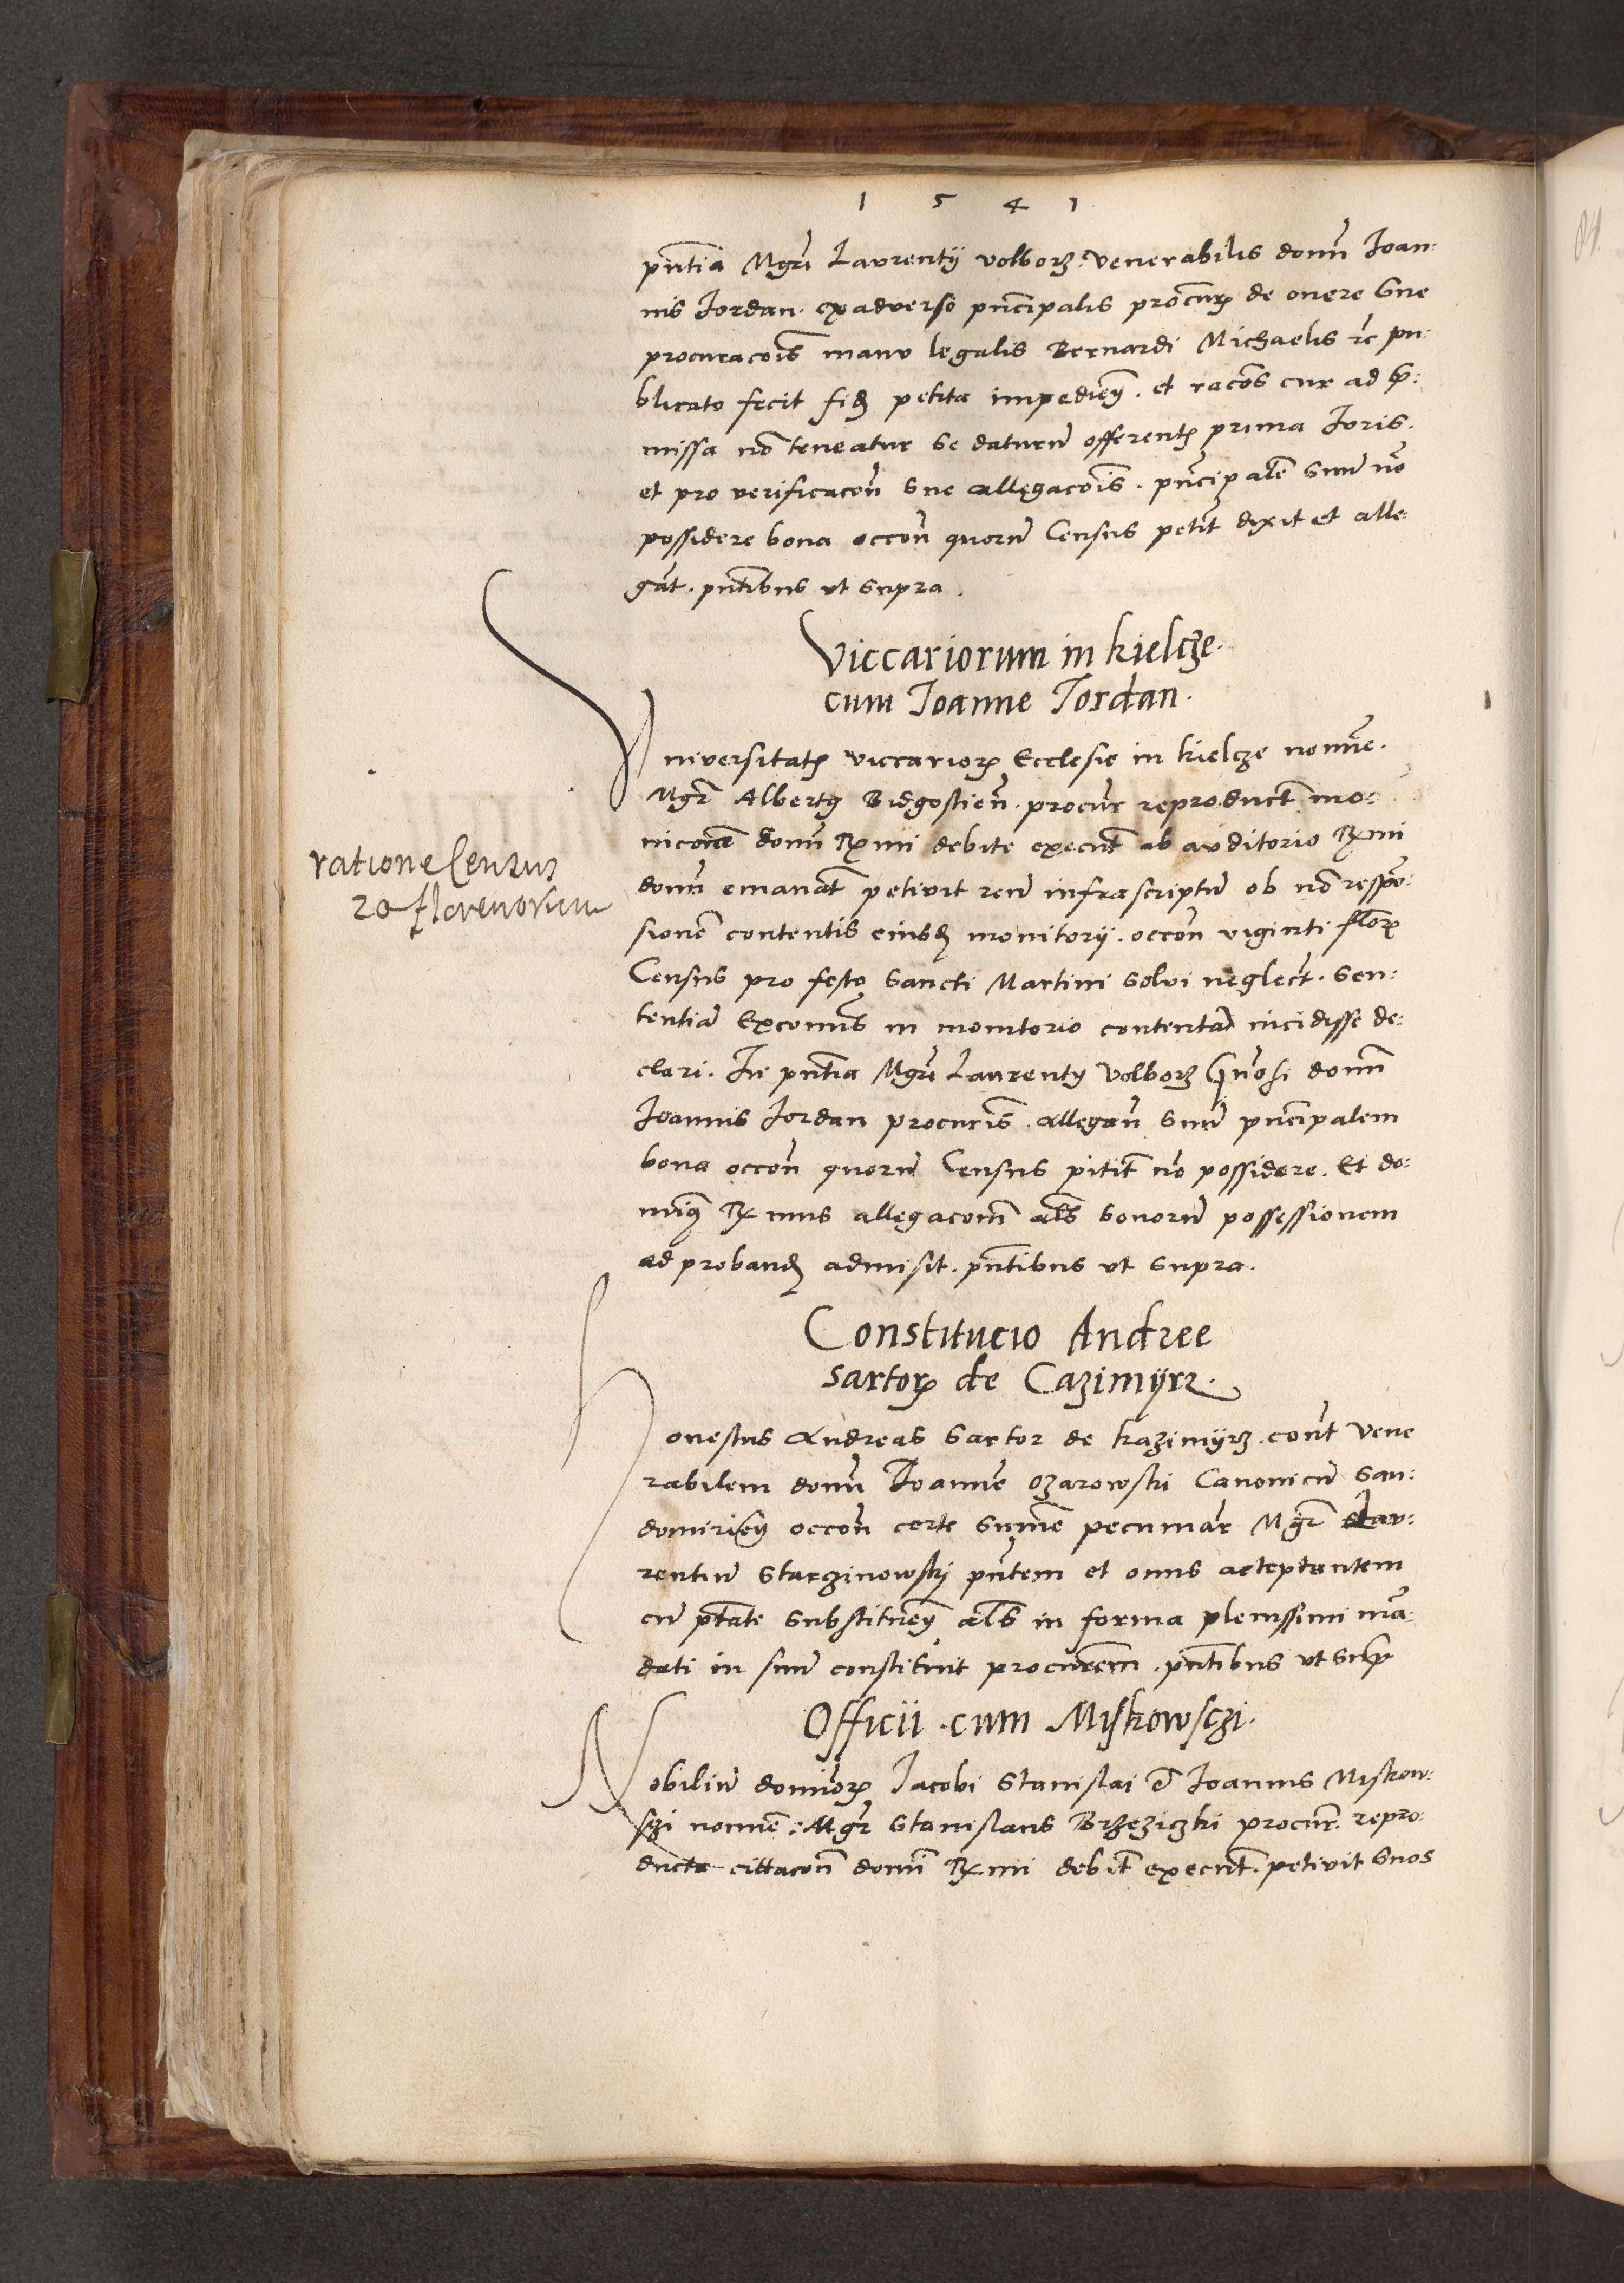 1 5 4 1
pntia Mgri Laurentij volborz venerabilis domi Ioan:
nis Iordan ex adverso pncipalis procur de onere sue
procuracois manu legalis Bernardi Michaelis rc pu:
blicato fecit fid petita impedien. et racoes cur ad p:
missa no teneatur se daturu offerentz prima Iuris.
et pro verificacon sue allegacois. pncipale suum no
possidere bona occon quoru Census petit dixit et alle:
gat. pntibus ut supra.
Viccariorum in kielcze.
cum Joanne Jordan.
Vniversitatis viccarior Ecclesie in kielcze nomine.
Mgr Albertus Bidgostien. procur reproduct mo:
nicone domi Rmi debite execut ab auditorio Rmi
ratione Census
20 florenorum
domi emanat petivit reu infrascriptu ob no respon:
sione contentis eiusd monitorij. occon viginti flor
Census pro festo sancti Martini solvi neglect. sen:
tentia Excomis in monitorio contenta incidisse de:
clari. In pntia Mgri Laurentij Volborz Gnosi domi
Joannis Jordan procuris. allegan suu pncipalem
bona occon quoru Census petit no possidere. Et do:
minus Rmus allegacom als bonoru possessionem
ad proband admisit. pntibus ut supra.
Constitucio Andree
sartor de Cazimyrz.
Honestus Andreas sartor de kazimyrz. cont vene
rabilem domi Joanne Ozarowski Canonicu san:
domirien occon certe sume pecuniar Mgr Lau:
rentiu Starzinowskj pntem et onus acceptantem
cu ptate substituen als in forma plenissimi ma:
dati in suu constituit procurem. pntibus ut sup
Officii cum Miskowsczi.
Nobiliu dominor Jacobi Stanislai et Joannis Miskow:
szi nomine. Mgr Stanislaus Brzeziczki procur. repro:
ducta cittacon domi Rmi debit execut. petivit suos